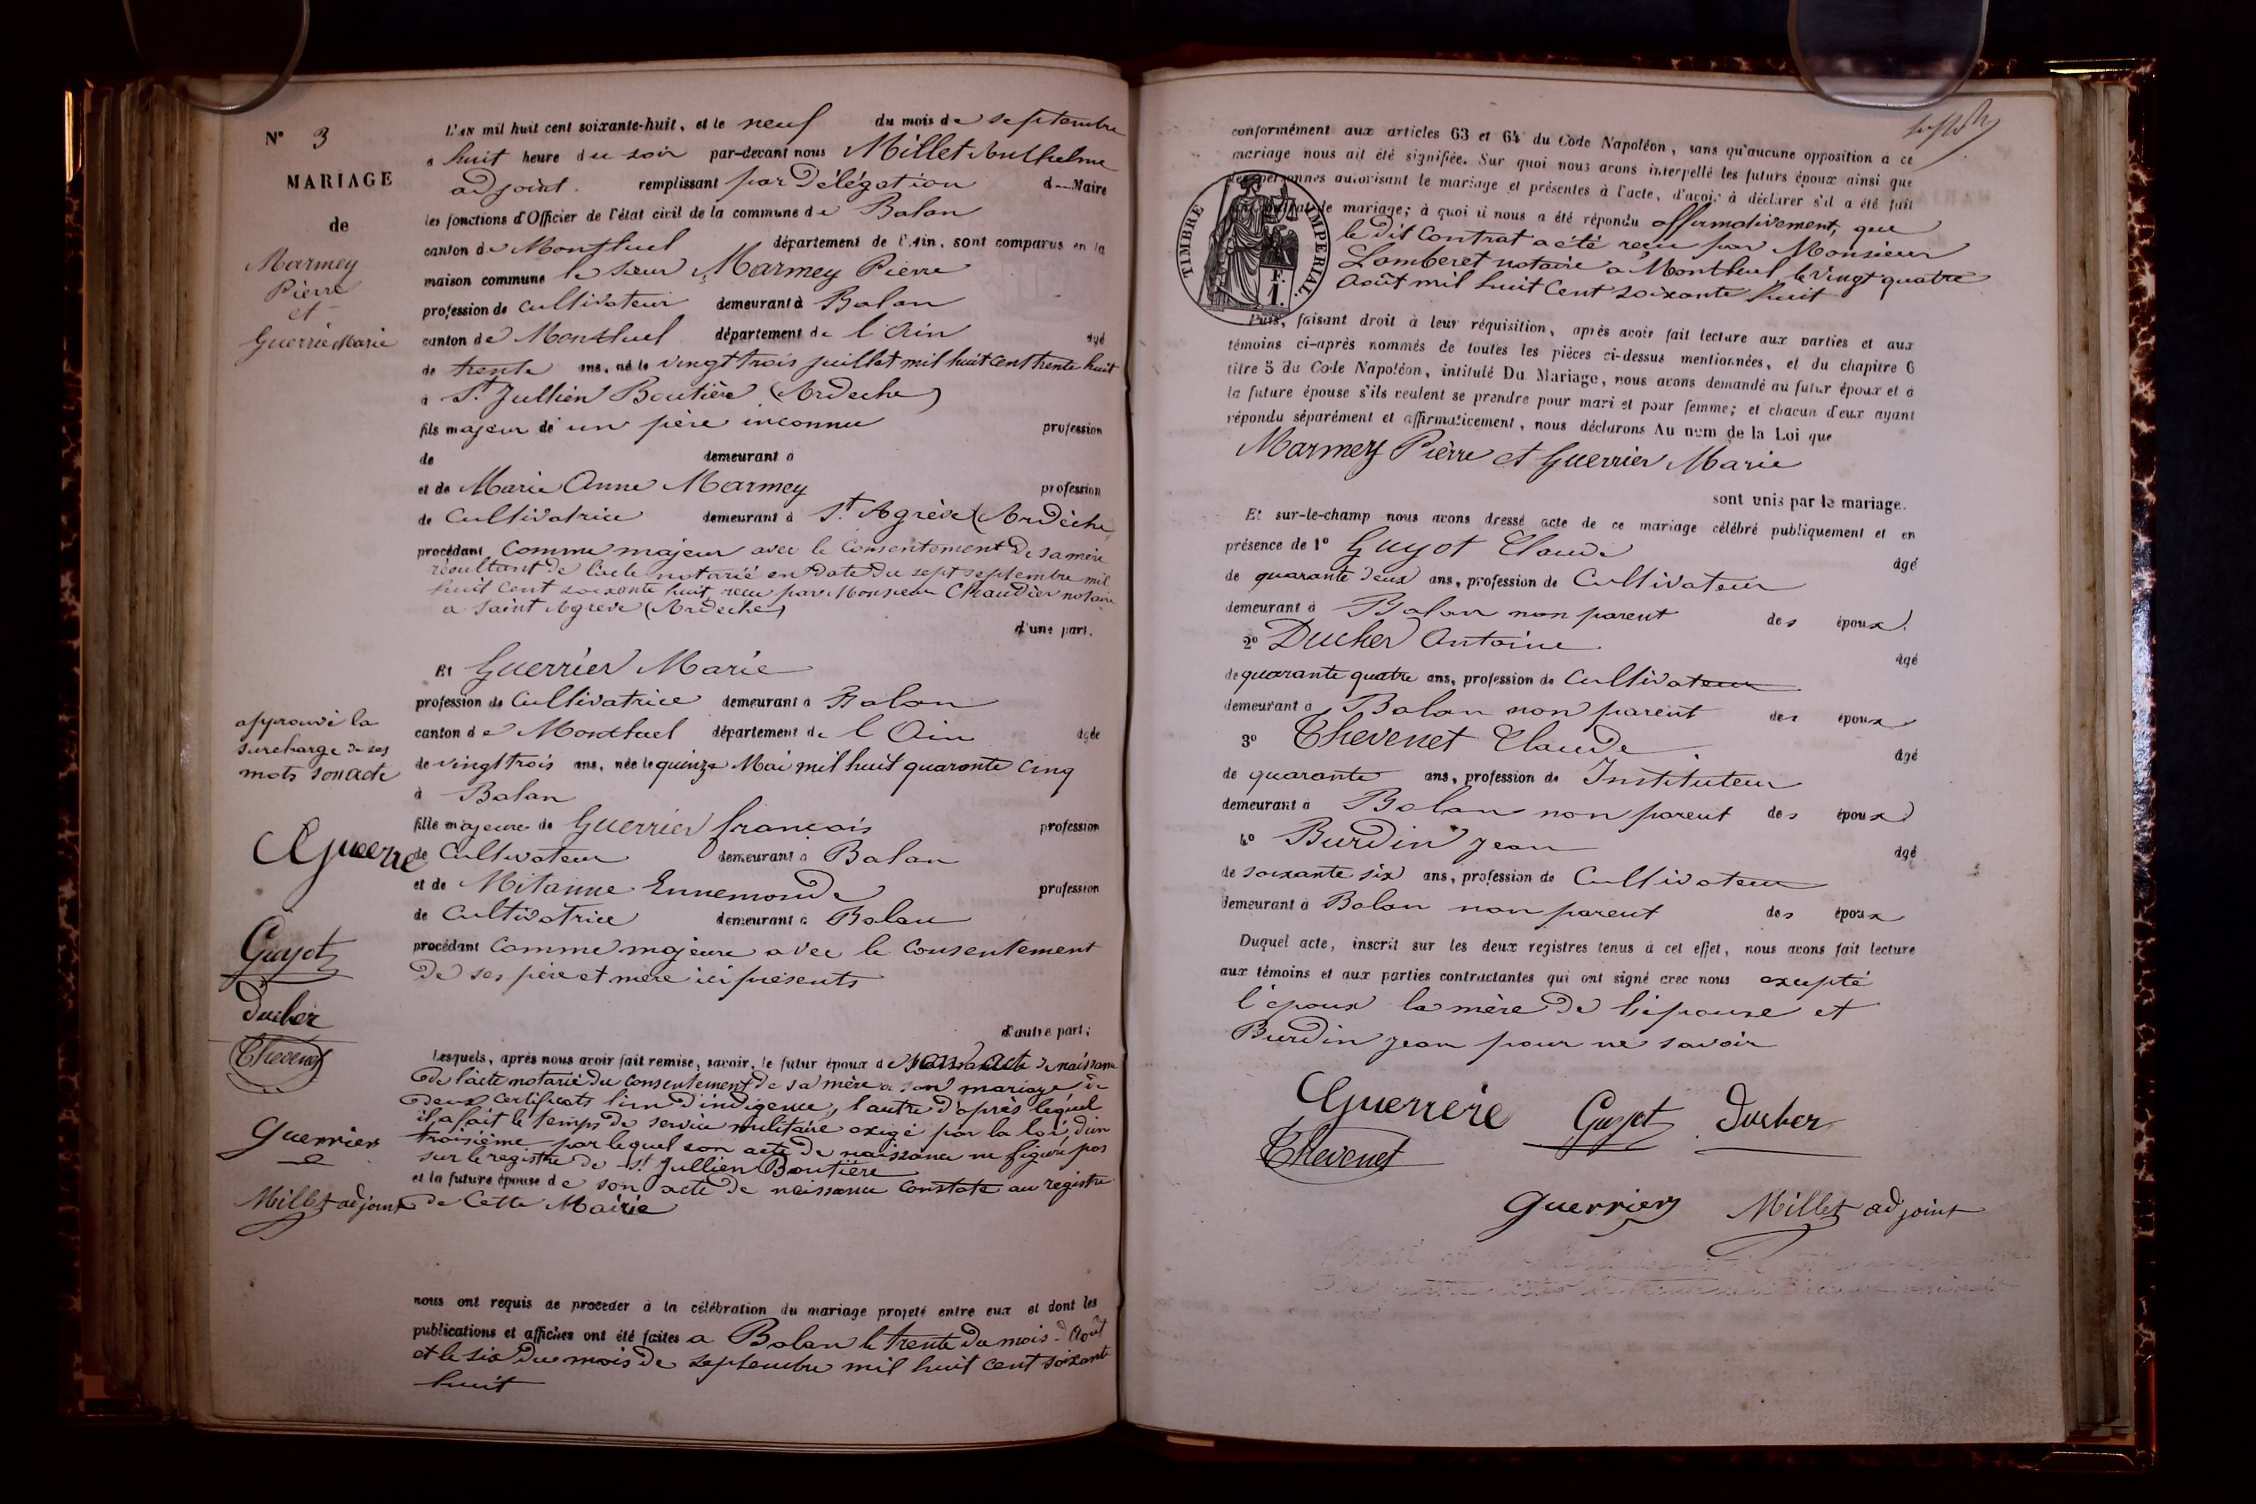 N° 3
MARIAGE
de
Marmey
Pierre
et
Guerrié Marie
L'an mil huit cent soixante-huit, et le neuf du mois de septembre
à huit heure du soir par-devant nous Millet Anthelme
adjoint remplissant par Délégation du Maire
les fonctions d'Officier de l'état civil de la commune de Balan
canton de Montluel département de l'Ain, sont comparus en la
maison commune le sieur Marmey Pierre
profession de Cultivateur demeurant à Balan
canton de Montluel département de l'Ain âgé
de trente ans, né le vingt trois juillet mil huit cent trente huit
à St Jullien Boutière (Ardeche)
fils majeur de un père inconnu profession
de demeurant à
et de Marie Anne Marmey profession
de Cultivatrice demeurant à St Agrève (Ardèche
procédant Comme majeur avec le Consentement De sa mère
résultant de l'acte notarié en Date Du sept septembre mil
huit Cent soixante huit recu par Monsieur Chaudier notaire
a Saint Agrève (Ardeche)
d'une part.
Et Guerrier Marie
profession de Cultivatrice demeurant à Balan
canton de Montluel département de l'Ain âgée
de vingt trois ans, née le quinze Mai mil huit quarante Cinq
à Balan
fille majeure de Guerrier français profession
de Cultivateur demeurant à Balan
et de Mitanne Ennemonde profession
de Cultivatrice demeurant à Balan
procédant Comme majeure avec le Consentement
De ses père et mère ici présents
d'autre part;
Lesquels, après nous avoir fait remise, savoir, le futur époux de son acte de naissance
De l'acte notarié Du Consentement De sa mère a son mariage de
Deux Certificats l'un D'indigence, l'autre D'après lequel
il a fait le temps De service militaire exigé par la loi, d'un
troisième par lequel son acte De naissance ne figure pas
sur le registre De St Jullien Boutière
et la future épouse de son acte De naissance Constaté au registre
De Cette Mairie
nous ont requis de procéder à la célébration du mariage projeté entre eux et dont les
publications et affiches ont été faites a Balan le trente Du mois d'Août
et le six Du mois De septembre mil huit cent soixante
huit
approuvé la
surcharge de ses
mots son acte
Guerre
Guyot
Ducher
Thevenet
Guerrier
Millet adjoint
conformément aux articles 63 et 64 du Code Napoléon, sans qu'aucune opposition à ce
mariage nous ait été signifiée. Sur quoi nous avons interpellé les futurs époux ainsi que
les personnes autorisant le mariage et présentes à l'acte, d'avoir à déclarer s'il a été fait
contrat de mariage; à quoi il nous a été répondu affirmativement, que
le Dit Contrat a été recu par Monsieur
Lamberet notaire a Montluel le Vingt quatre
Août mil huit Cent soixante huit
TIMBRE IMPERIAL
1 F.
Puis, faisant droit à leur réquisition, après avoir fait lecture aux parties et aux
témoins ci-après nommés de toutes les pièces ci-dessus mentionnées, et du chapitre 6
titre 5 du Code Napoléon, intitulé Du Mariage, nous avons demandé au futur époux et à
la future épouse s'ils veulent se prendre pour mari et pour femme; et chacun d'eux ayant
répondu séparément et affirmativement, nous déclarons Au nom de la Loi que
Marmey Pièrre et Guerrier Marie
sont unis par le mariage.
Et sur-le-champ nous avons dressé acte de ce mariage célébré publiquement et en
présence de 1° Guyot Claude âgé
de quarante Deux ans, profession de Cultivateur
demeurant à Balan non parent des époux.
2° Ducher Antoine âgé
de quarante quatre ans, profession de Cultivateur
demeurant à Balan non parent des époux
3° Thevenet Claude âgé
de quarante ans, profession de Instituteur
demeurant à Balan non parent des époux
4° Burdin Jean âgé
de soixante six ans, profession de Cultivateur
demeurant à Balan non parent des époux
Duquel acte, inscrit sur les deux registres tenus à cet effet, nous avons fait lecture
aux témoins et aux parties contractantes qui ont signé avec nous excepté
l'époux la mère De l'épouse et
Burdin Jean pour ne savoir
Guerrère Guyot Ducher
Thevenet
Guerrier Millet adjoint